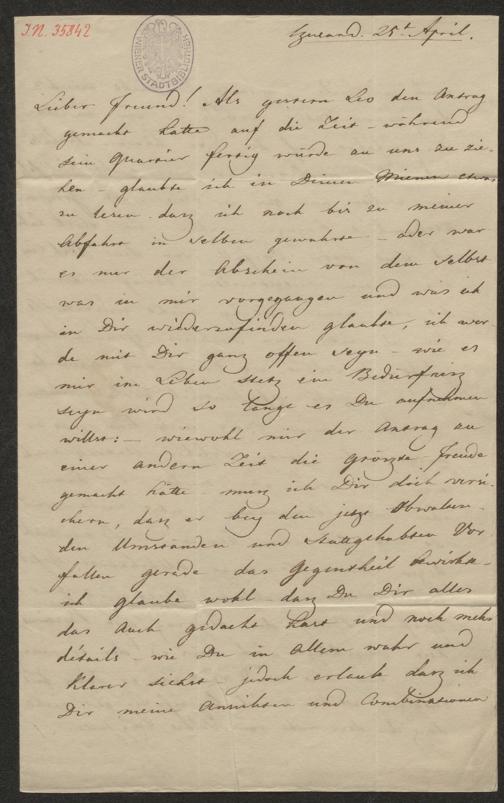 I.N. 35842
WIENER STADTBIBLIOTHEK
25t April.
Lieber Freund! Als gestern Leo den Antrag
gemacht hatte auf die Zeit – während
sein Quartier fertig würde zu uns zu zie-
hen – glaubte ich in Deinen Mienen etwas
zu lesen das ich noch bis zu meiner
Abfahrt in selben gewahrte – oder war
es nur der Abschein von dem selbst
was in mir vorgegangen und was ich
in Dir wiederzufinden glaubte, ich wer
de mit Dir ganz offen seyn – wie es
mir im Leben stetz ein Bedürfniss
seyn wird so lange es Du aufnehmen
willst: – wiewohl mir der Antrag zu
einer andern Zeit die grösste Freude
gemacht hätte – muss ich Dir doch versi-
chern, dass er bey den jetzt obwalten-
den Umständen und stattgehabten Vor
fällen gerade das Gegentheil bewirkte –
ich glaube wohl dass Du Dir alles
das auch gedacht hast und noch mehr
détails – wie Du in Allem wahr und
klarer siehst – jedoch erlaube dass ich
Dir meine Ansichten und Combinationen